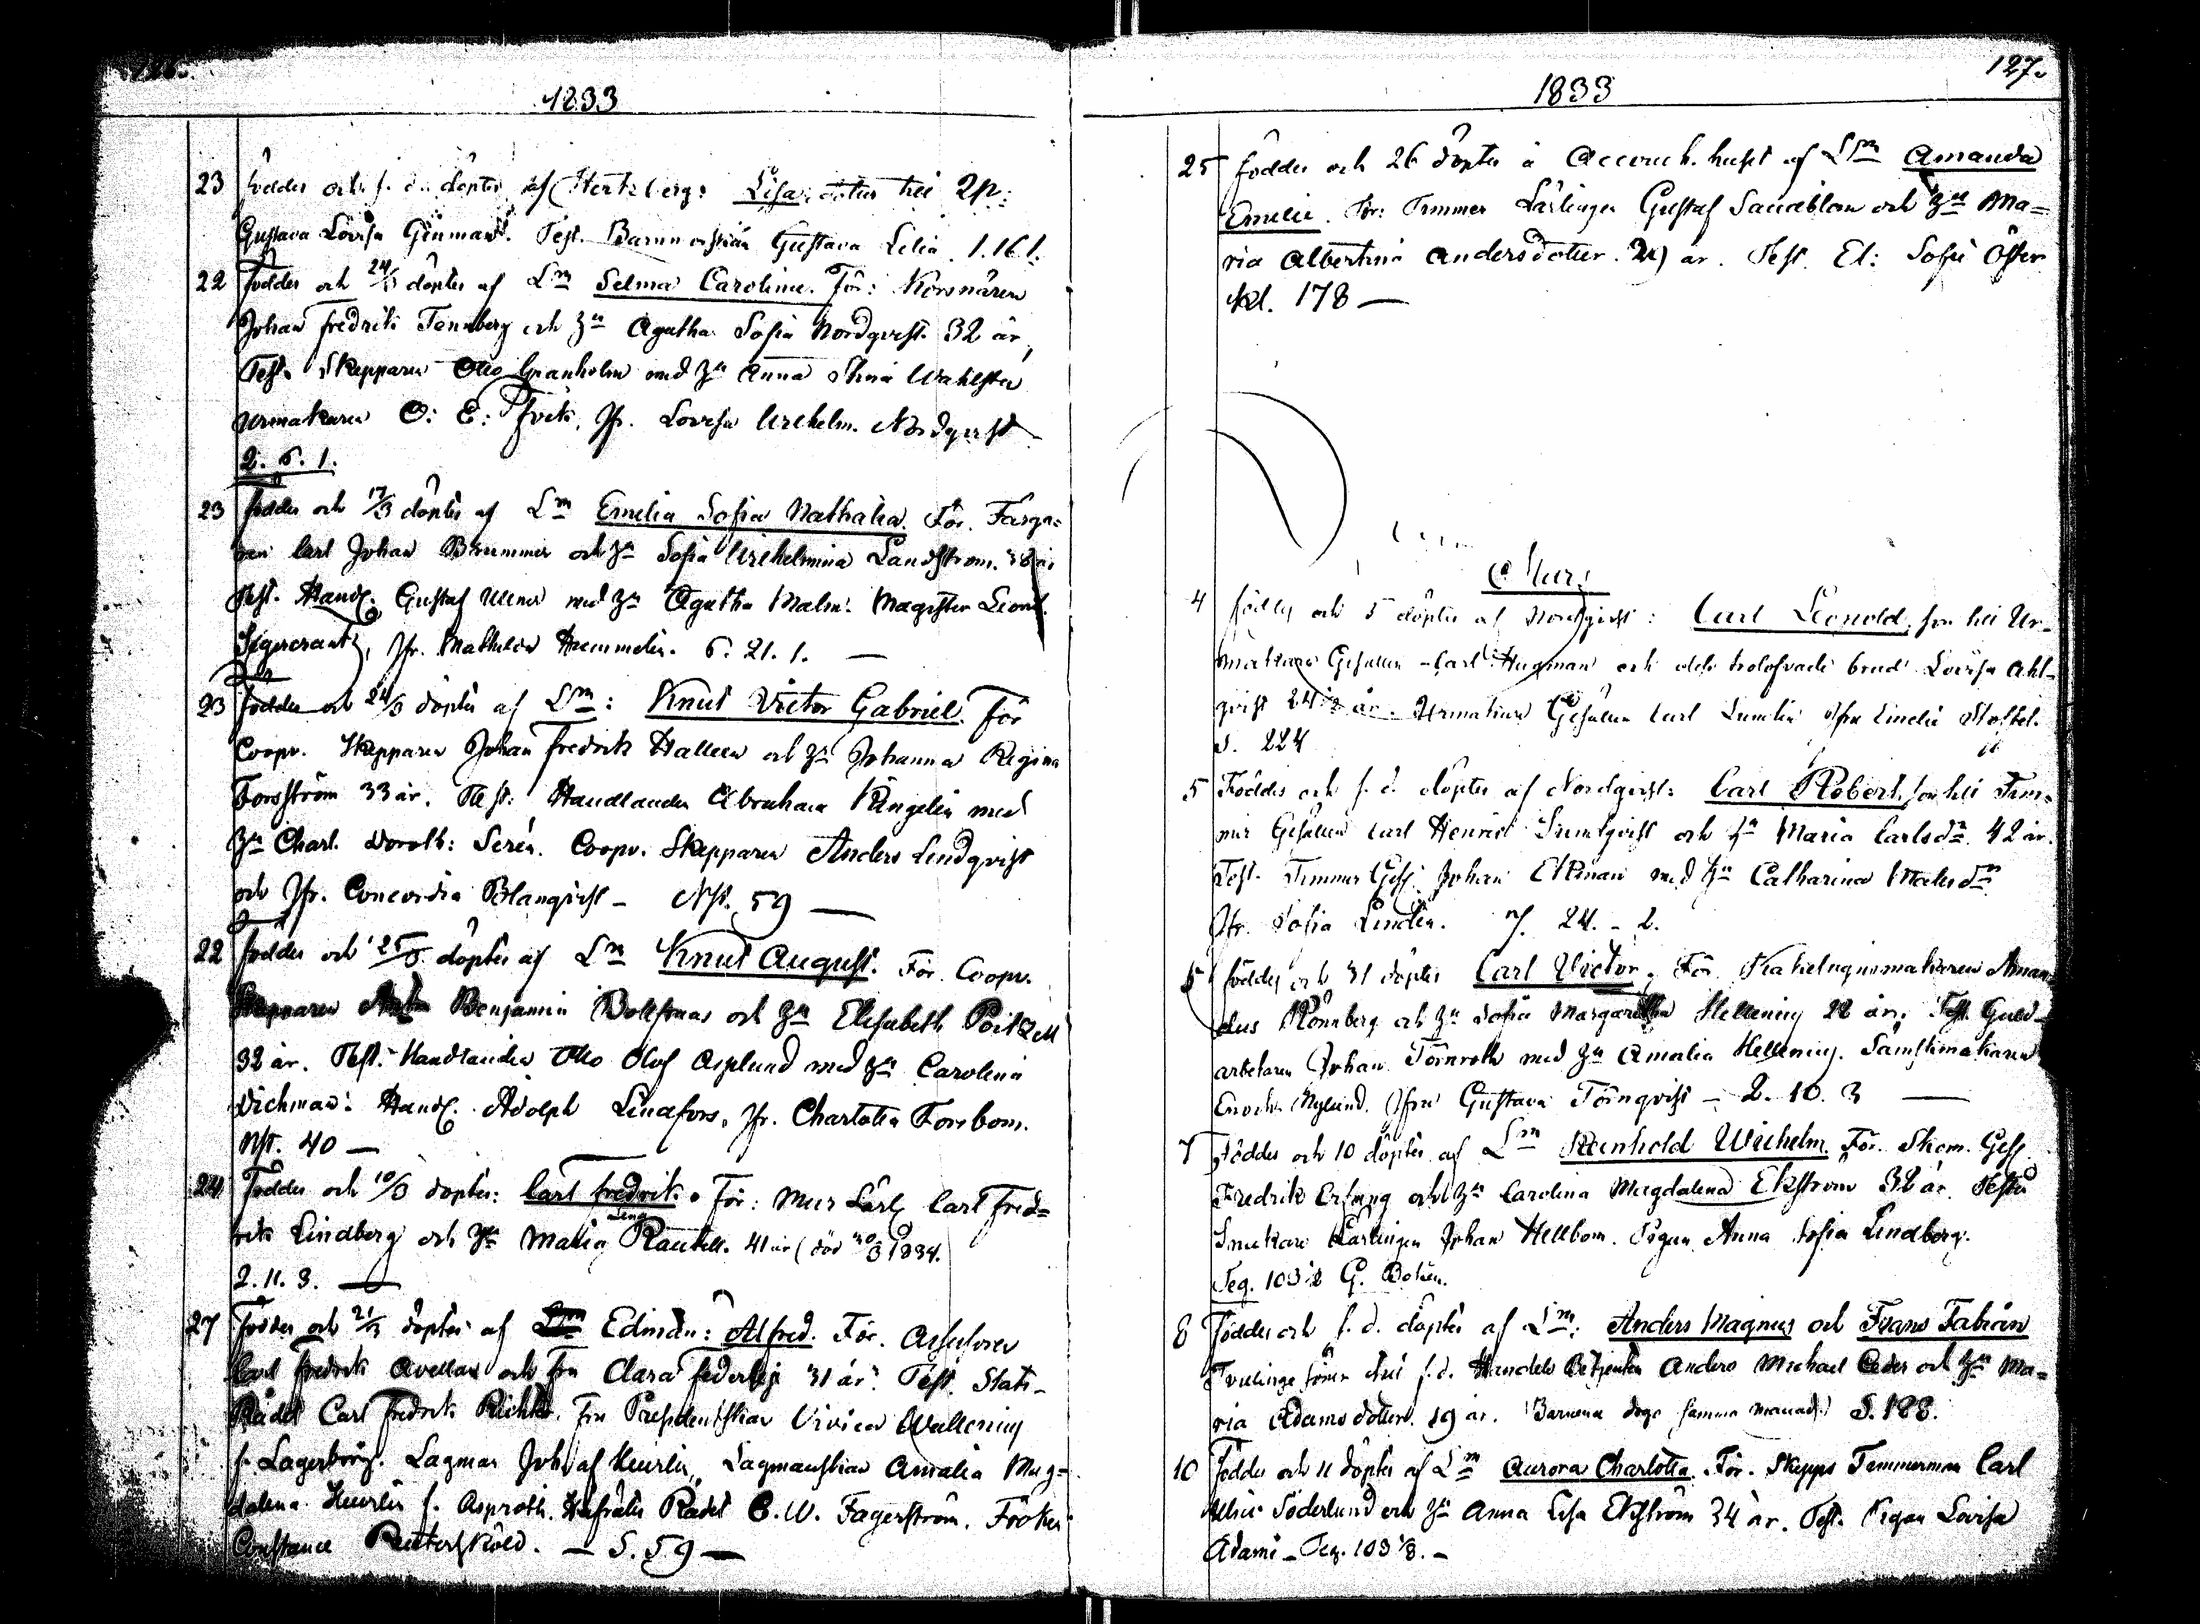 126.
1833
23 föddes och s. d. döptes af Hertzberg: Lisa, dotter till Qp:
Gustava Lovisa Ginman. Test. Barnm orskan Gustava Lilia. 1.16 1.
22 föddes och 24/3 döptes af Lm Selma Carolina. För: Korsnären
Johan Fredrik Tennberg och Hu Agatha Sofia Nordqvist. 32 år,
Test. Skepparen Otto Granholm med Hu Anna Stina Wahlsten
Urmakaren O: E: Jfr. Lovisa Wilhelm. Nordqvist
2. 6. 1.
23 föddes och 17/3 döptes af Lm Emelia Sofia Nathalia. För. Färga=
ren Carl Johan Brummer och Hu Sofia Wilhelmina Landström. 38 år
Test. Handl. Gustaf med Hu Agatha Malm. Magister
Sigercrantz, Jfr. Mathilda 6. 21. 1. —
23 föddes och 24/3 döptes af Lm: Knut Victor Gabriel. För
Coopv. Skepparen Johan Fredrik Hallen och Hu Johanna Regina
Forsström 33 år. Test: Handlanden Abraham Kingelin med
Hu Charl. Doroth: Serén. Coopv. Skepparen Anders Lindqvist
och Jfr. Concordia Blanqvist - Nst. 59 —
22 föddes och 25/3 döptes af Lm Knut August. För Coopv.
Skepparen Benjamin och Hu Elisabeth
32 år. Test. Handlanden Otto Olof Asplund med Hu Carolina
Dichman. Handl. Adolph Lindfors, Jfr. Charlotta Forsbom.
Nst. 40 —
24 Föddes och 10/3 döptes: Carl Fredrik. För: Mur Lärl Carl Fred=
rik Lindberg och Hu Maria 41 år (död 20/3 1834.
2. 11. 3. —
27 föddes och 21/3 döptes af Edman: Alfred. För. Assessoren
Carl Fredrik Avellan och Fru Clara Federley 31 år. Test. Stats-
Rådet Carl Fredrik Richter. Fru Presidentskan Vivica Wallenius
f. Lagerborg. Lagman Joh. af Heurlin, Lagmanskan Amalia Mag=
dalena Heurlin f. Asproth. Hofrätts Rådet C. W. Fagerström. Fröken
Constance Reuterskiöld. — S. 59 —
127.
1833
25 föddes och 26 döptes å Accouch. huset af Lm Amanda
Emelie. För: Timmer Lärlingen Gustaf Sandblom och Hu Ma=
ria Albertina Andersdotter. år. Test. El: Sofie Öster
Kl. 178 —
Mur:
4 föddes och 5 döptes af Nordqvist: Carl Leonold, son till Ur-
makare Gesällen Carl Hagman och dess trolofvade brud Lovisa Ahl-
qvist 24 1/2 år. Urmakare Gesällen Carl Sumelin Jfru Emelie
S. 224
5 Föddes och s. d. döptes af Nordqvist: Carl Robert, son till Tim-
mer Gesällen Carl Henric och Hu Maria Carlsdr. 42 år.
Test. Timmer Ges. Johan Ekman med Hu Catharina Matsdr
Jfr. Sofia Lindén. N. 24. - 2.
5 föddes och 31 döptes Carl Victor. För. Kakelugnsmakaren Aman
dus Rönnberg och Hu Sofia Margaretha Hellenius 22 år. Test. Guld-
arbetaren Johan Törnroth med Hu Amalia Hellenius. Sämskmakaren
Enoch Nylund. Jfru Gustava Törnqvist — 2. 10. 3 —
7 föddes och 10 döptes af Lm Reinhold Wilhelm. För. Skom. Gess
Fredrik och Hu Carolina Magdalena Ekström 32 år. Test.
Snickare Lärlingen Johan Hellbom. Pigan Anna Sofia Lindberg.
Teg. 103 1/2 G. Bolien.
8 föddes och s. d. döptes af Lm: Anders Magnus och Frans Fabian
Tvillinge söner till f. d. Handels Betjenten Anders Michael Ceder och Hu Ma=
ria Adamsdotter. 29 år. (Barnena dogo samma månad.) S. 188.
10 föddes och 11 döptes af Lm Aurora Charlotta. För. Skepps Timmerman Carl
Ulric Söderlund och Hu Anna Lisa Ekström 34 år. Test. Pigan Lovisa
Adami - Teg. 103 1/3. —